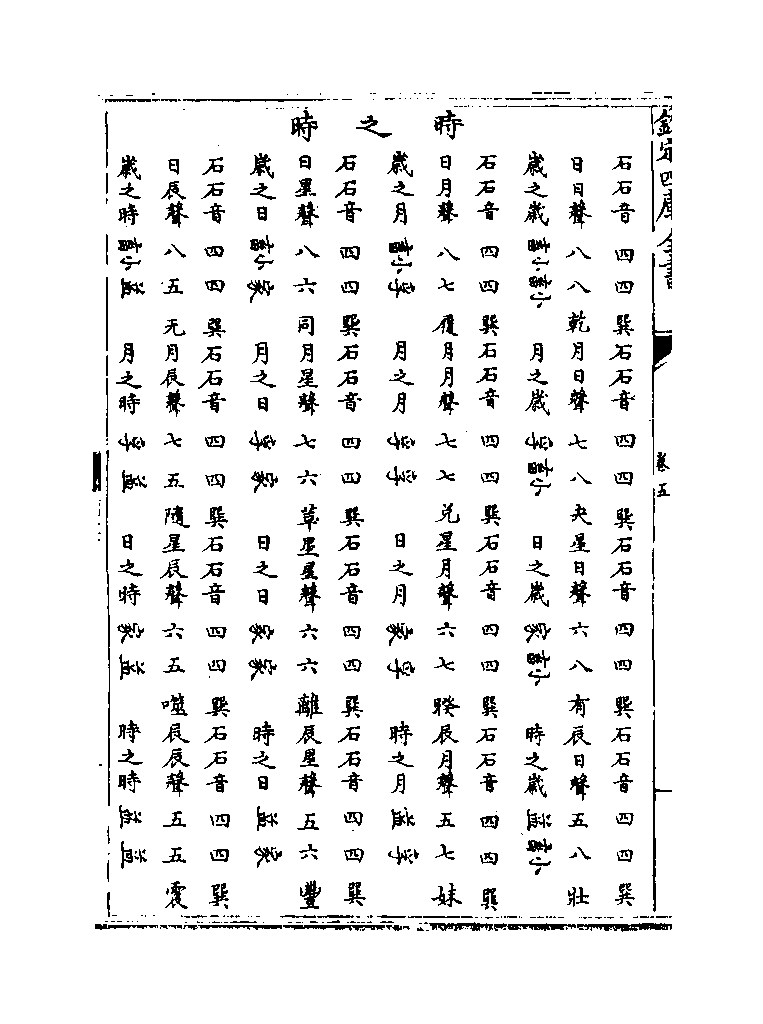 欽定四庫全書 卷五
時之時
石石音四四巽石石音四四巽石石音四四巽石石音四四巽
日日聲八八乾月日聲七八夬星日聲六八有辰日聲五八壯
歲之歲小畜小畜月之歲孚小畜日之歲家小畜時之歲益小畜
石石音四四巽石石音四四巽石石音四四巽石石音四四巽
日月聲八七履月月聲七七兌星月聲六七睽辰月聲五七妹
歲之月小畜孚月之月孚孚日之月家孚時之月益孚
石石音四四巽石石音四四巽石石音四四巽石石音四四巽
日星聲八六同月星聲七六革星星聲六六離辰星聲五六豐
歲之日小畜家月之日孚家日之日家家時之日益家
石石音四四巽石石音四四巽石石音四四巽石石音四四巽
日辰聲八五无月辰聲七五隨星辰聲六五噬辰辰聲五五震
歲之時小畜益月之時孚益日之時家益時之時益益